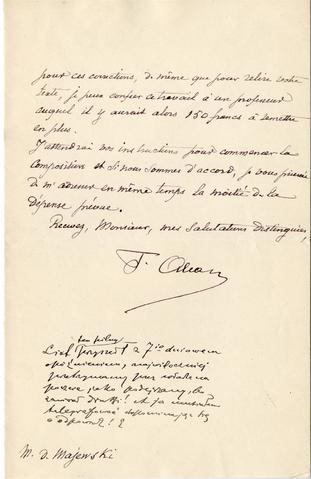 pour ces corrections, de même que pour relire votre
texte, je peux confier ce travail à un professeur
auquel il y aurait alors 150 francs à remettre
en plus.
J'attendrai vos instructions pour commencer la
Composition et si nous sommes d'accord, je vous prierai
de m'adresser en même temps la moitié de la
dépense prévue.
Recevez, Monsieur, mes salutations distinguées,
F. Alcan
ten pilny
List z 7io dniowem
opóźnieniem, najwidoczniej
przetrzymany przez
jako podejrzany,
! A ja
telegrafować
odpowiedź!!
M. E. Majewski